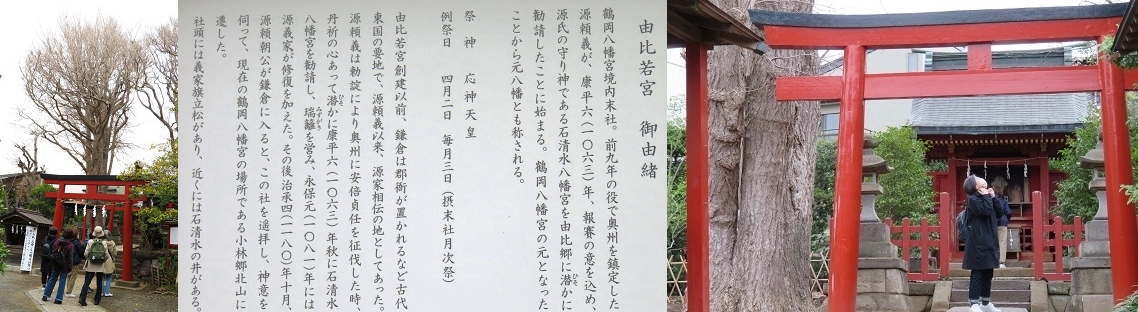 由比若宮　御由緒
鶴岡八幡宮境内末社。前九年の役で奥州を鎮定した
源頼義が、康平六(一〇六三)年、報賽の意を込め、
源氏の守り神である石清水八幡宮を由比郷に潜かに
ひそ
勧請したことに始まる。鶴岡八幡宮の元となった
ことから元八幡とも称される。
祭　神　応神天皇
例祭日　四月二日　毎月三日(摂末社月次祭)
由比若宮創建以前、鎌倉は郡衙が置かれるなど古代
東国の要地で、源頼義以来、源家相伝の地としてあった。
源頼義は勅諚により奥州に安倍貞任を征伐した時、
丹祈の心あって潜かに康平六(一〇六三)年秋に石清水
ひそ
八幡宮を勧請し、瑞籬を営み、永保元(一〇八一)年には
みずがき
源義家が修復を加えた。その後治承四(一一八〇)年十月、
源頼朝公が鎌倉に入ると、この社を遥拝し、神意を
伺って、現在の鶴岡八幡宮の場所である小林郷北山に
遷した。
社頭には義家旗立松があり、近くには石清水の井がある。